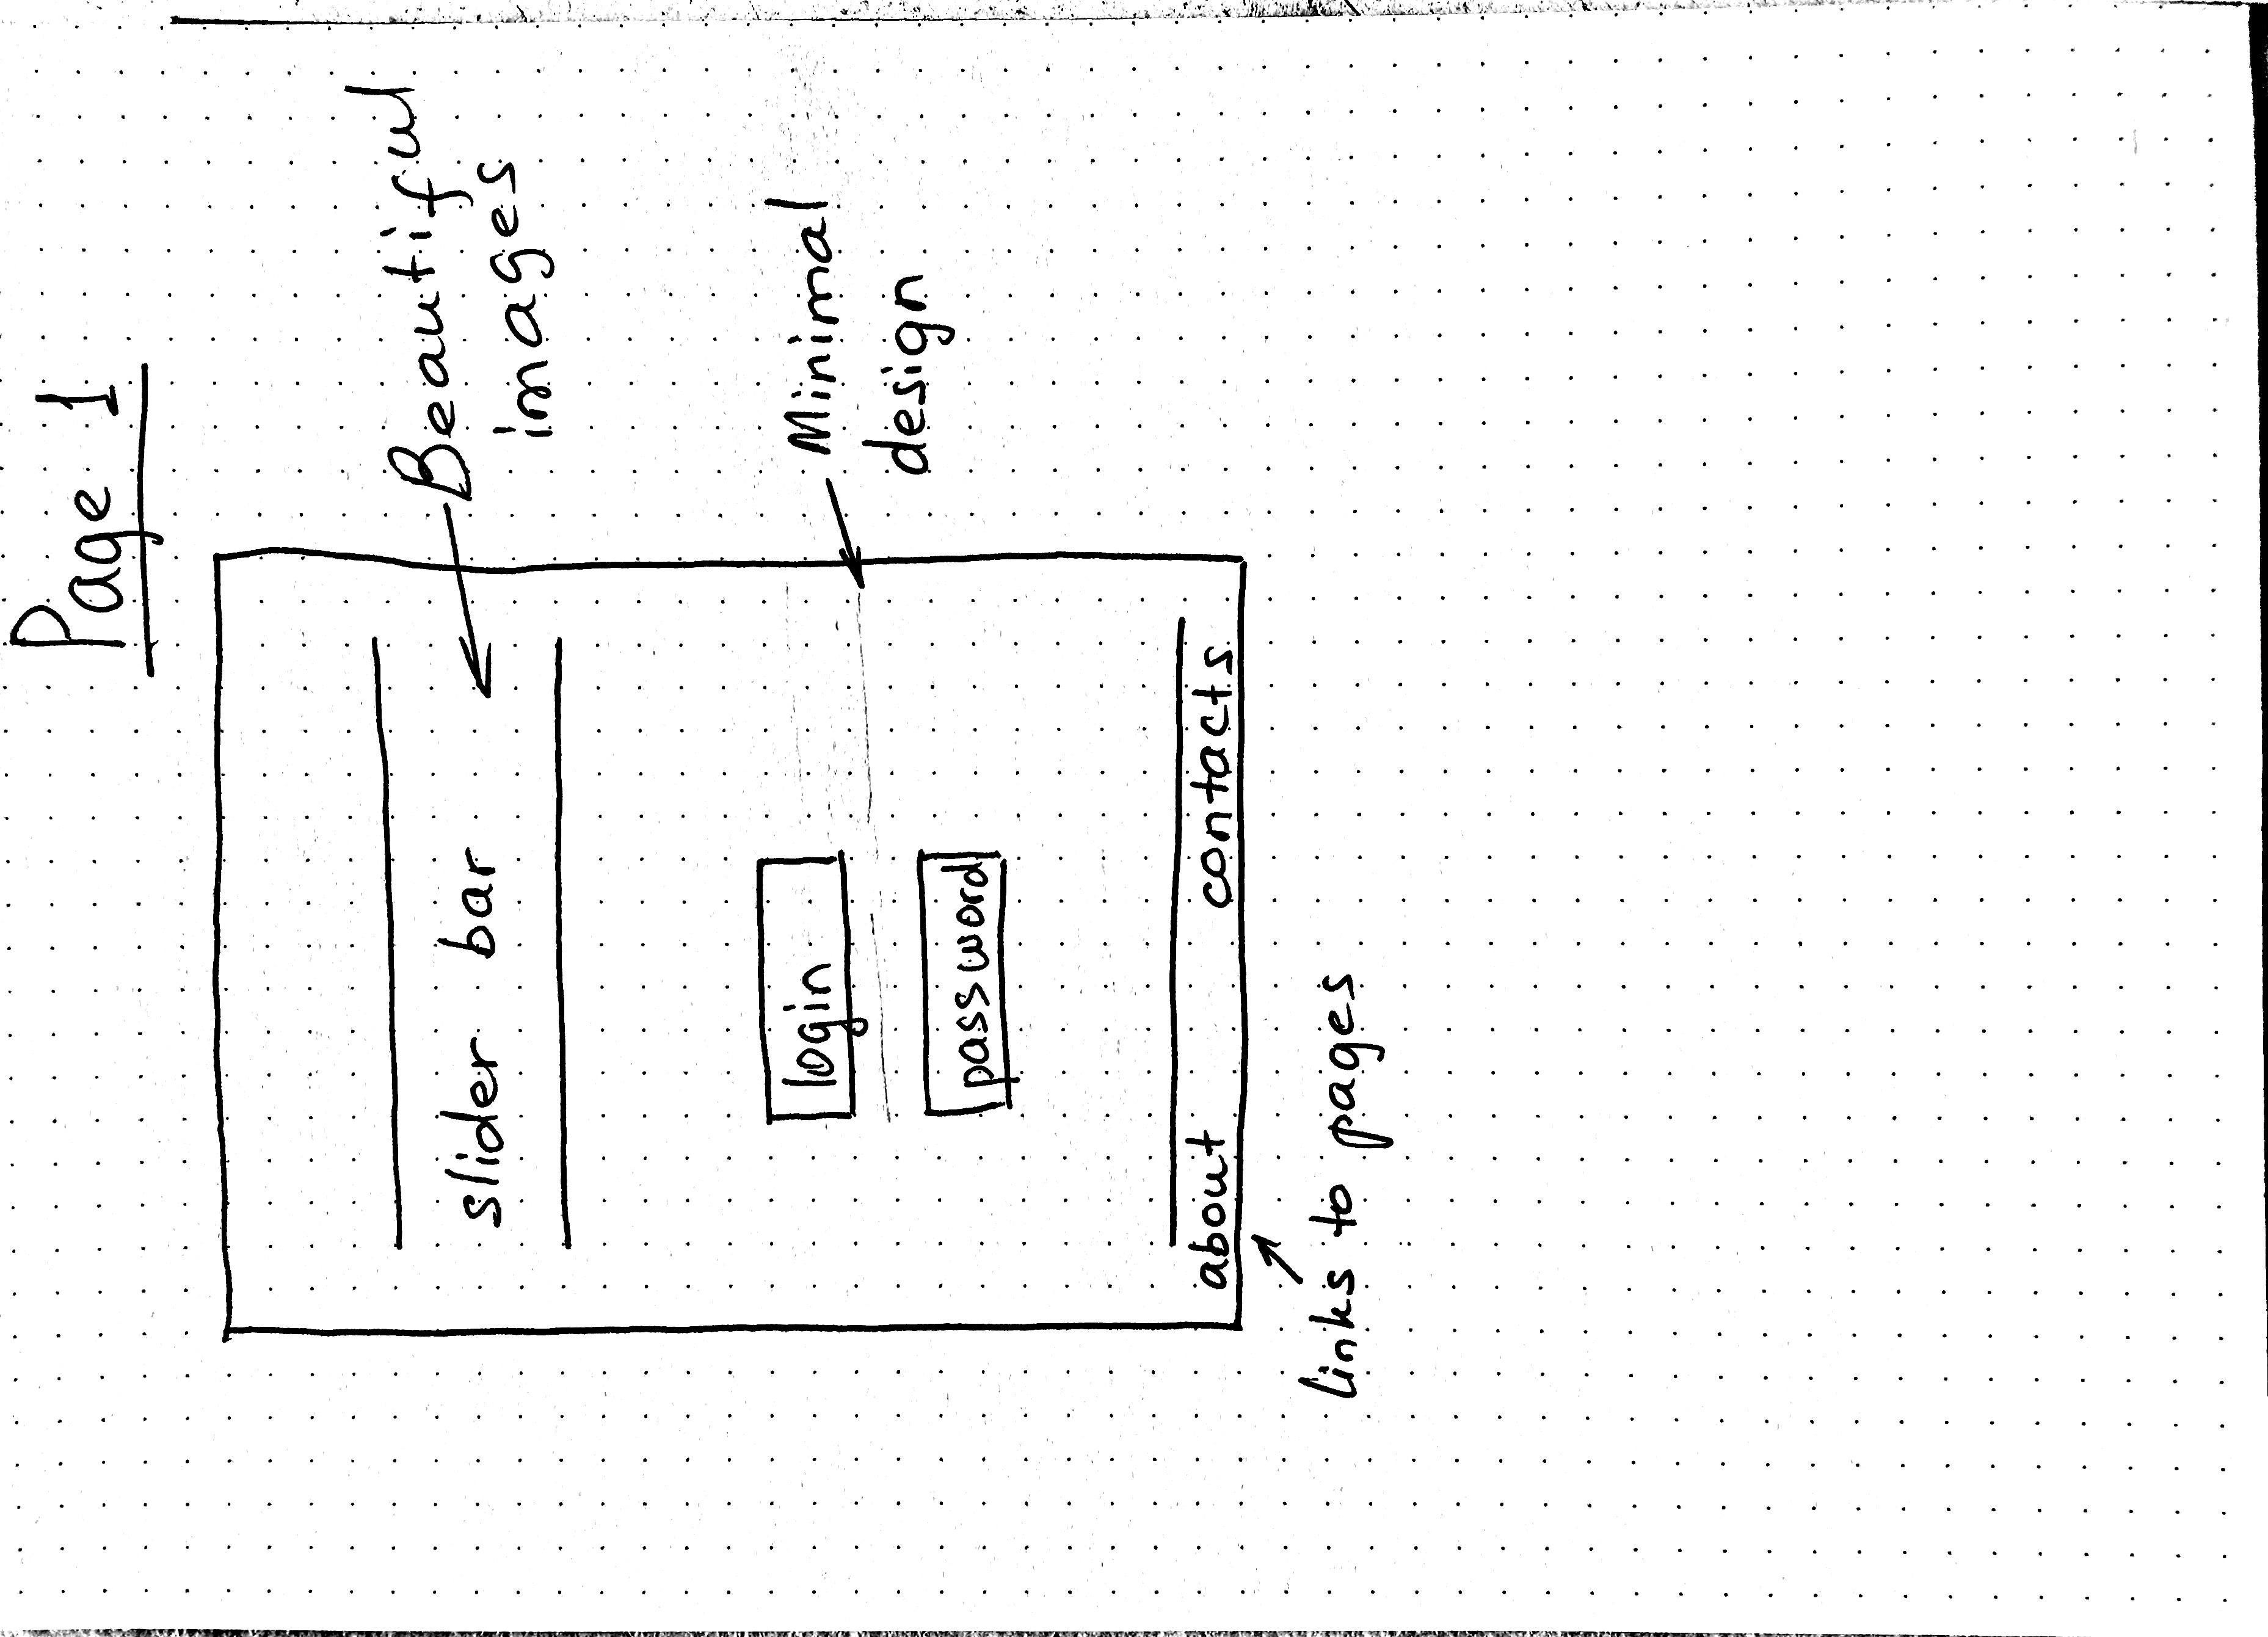 Page 1
slider bar
Beautiful
images
login
Minimal
design
password
about contacts
links to pages